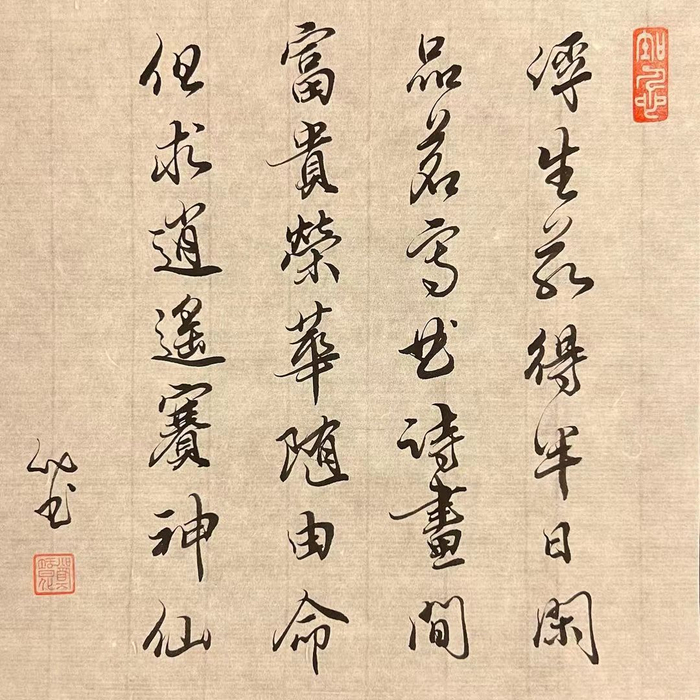 浮生若得半日閑
品茗寫書詩畫間
富貴榮華隨由命
但求逍遙賽神仙